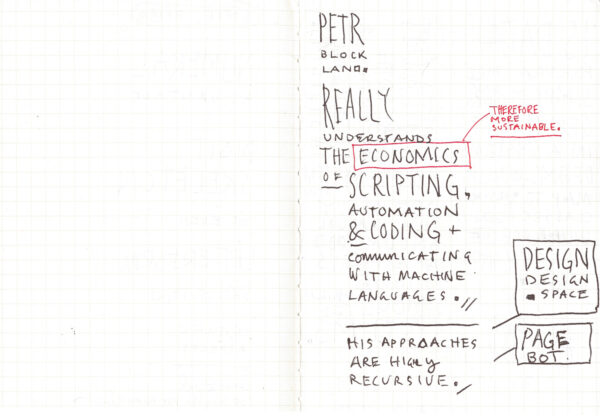 PETR
BLOCK
LAND.
REALLY
UNDERSTANDS
THE ECONOMICS
OF SCRIPTING,
AUTOMATION
& CODING +
COMMUNICATING
WITH MACHINE
LANGUAGES.//
HIS APPROACHES
ARE HIGHLY
RECURSIVE./
THEREFORE
MORE
SUSTAINABLE.
DESIGN
DESIGN
SPACE
PAGE
BOT.